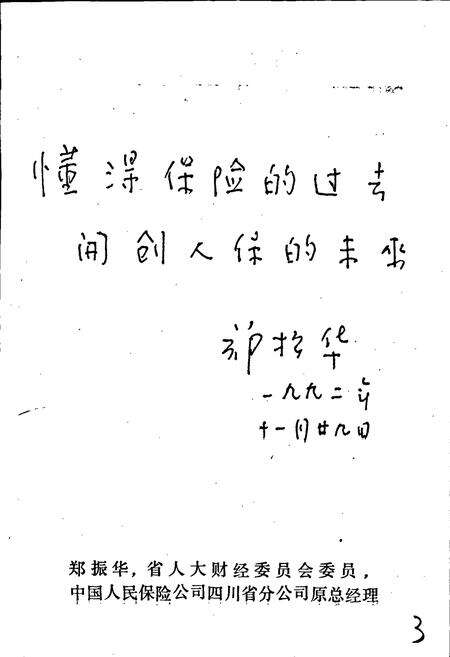 懂深保险的过去
开创人保的未来
郑振华
一九九二年
十一月廿九日
郑振华，省人大财经委员会委员，
中国人民保险公司四川省分公司原总经理
3